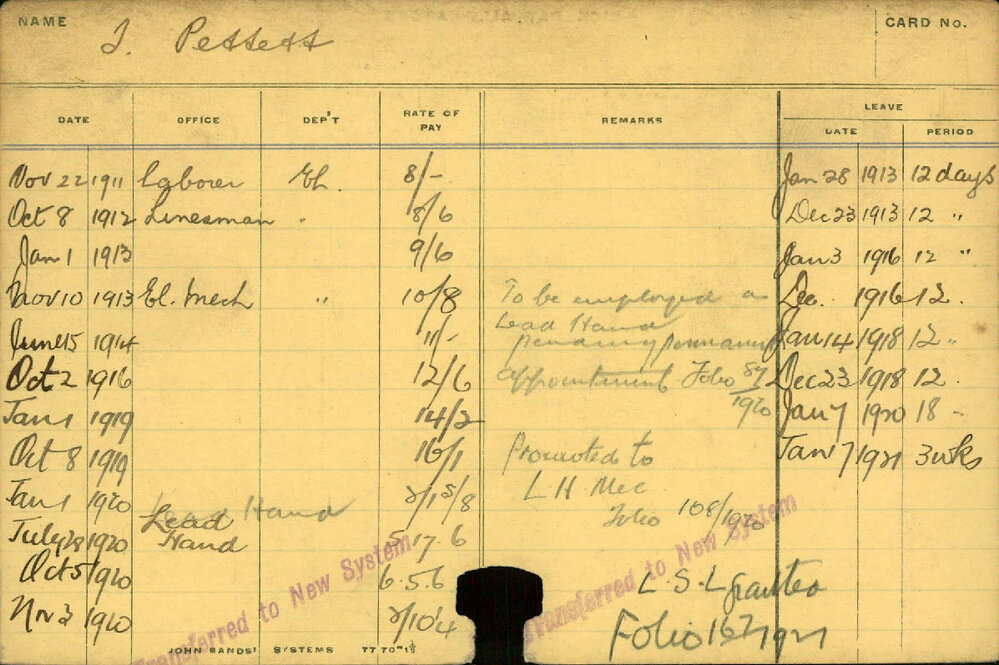 NAME J. Pettett CARD No.
LEAVE
DATE OFFICE DEP'T RATE OF PAY REMARKS DATE PERIOD
Nov 22 1911 Laborer El. 8/- Jan 28 1913 12 days
Oct 8 1912 Linesman " 8/6 Dec 23 1913 12 "
Jan 1 1913 9/6 Jan 3 1916 12 "
Nov 10 1913 El. Mech " 10/8 To be employed as Dec. 1916 12.
Lead Hand
June 15 1914 11/- pending permanent Jan 14 1918 12 "
Oct 2 1916 12/6 appointment Folio 87/1920 Dec 23 1918 12.
Jan 1 1919 14/2 Jan 7 1920 18 -
Oct 8 1919 16/1 Promoted to Jan 7 1921 3 wks
L.H. Mec
Jan 1 1920 Lead Hand 15/8
Folio 108/1920
July 28 1920 Lead Hand 5.17.6
Oct 5 1920 6.5.6 L.S.L granted
Nov 3 1920 10/4 Folio 167/1921
Transferred to New System
Transferred to New System
JOHN SANDS' SYSTEMS 7770